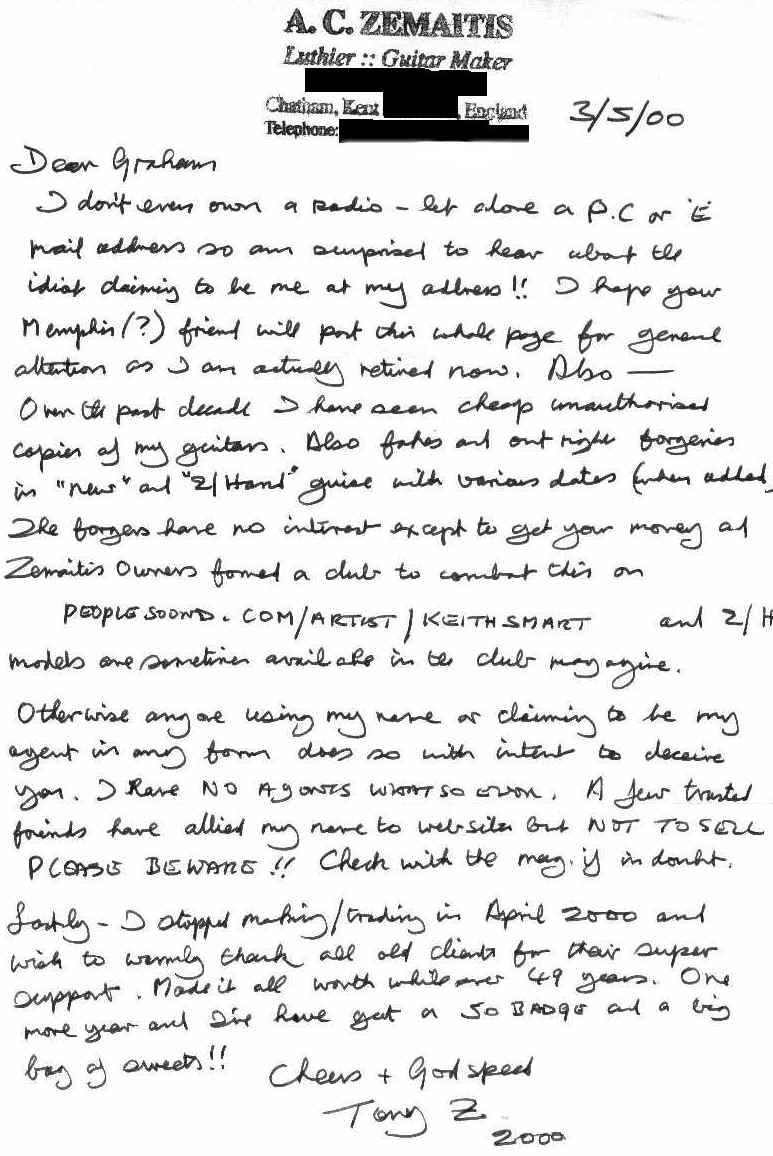 A. C. ZEMAITIS
Luthier :: Guitar Maker
Chatham, Kent , England
Telephone:
3/5/00
Dear Graham
I don't even own a radio – let alone a P.C or 'E'
mail address so am surprised to hear about the
idiot claiming to be me at my address!! I hope your
Memphis(?) friend will post this whole page for general
attention as I am actually retired now. Also —
Over the past decade I have seen cheap unauthorised
copies of my guitars. Also fakes and outright forgeries
in "new" and "2/Hand" guise with various dates (when added)
The forgers have no interest except to get your money and
Zemaitis Owners formed a club to combat this on
PEOPLESOUND.COM/ARTIST/KEITHSMART and 2/H
models are sometimes available in the club magazine.
Otherwise anyone using my name or claiming to be my
agent in any form does so with intent to deceive
you. I have NO AGENTS WHATSOEVER. A few trusted
friends have allied my name to websites but NOT TO SELL
PLEASE BEWARE!! Check with the mag. if in doubt.
Lastly – I stopped making/trading in April 2000 and
wish to warmly thank all old clients for their super
support. Made it all worth while over 49 years. One
more year and I'd have got a 50 BADGE and a big
bag of sweets!!
Cheers + Godspeed
Tony Z
2000